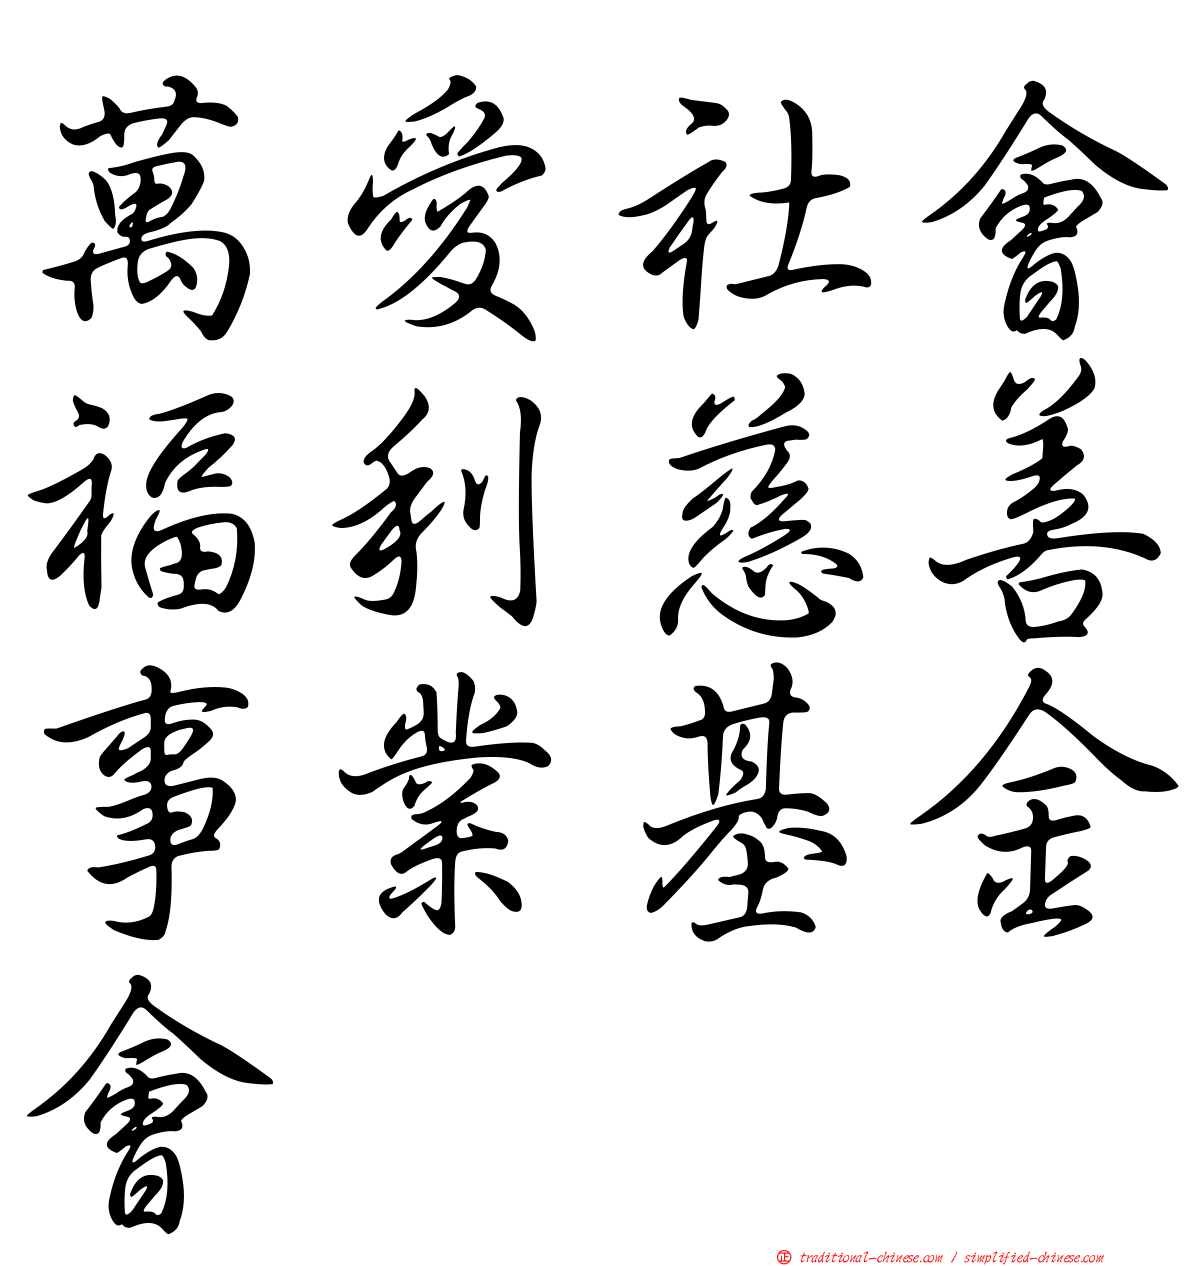 萬愛社會
福利慈善
事業基金
會
正 traditional-chinese.com / simplified-chinese.com